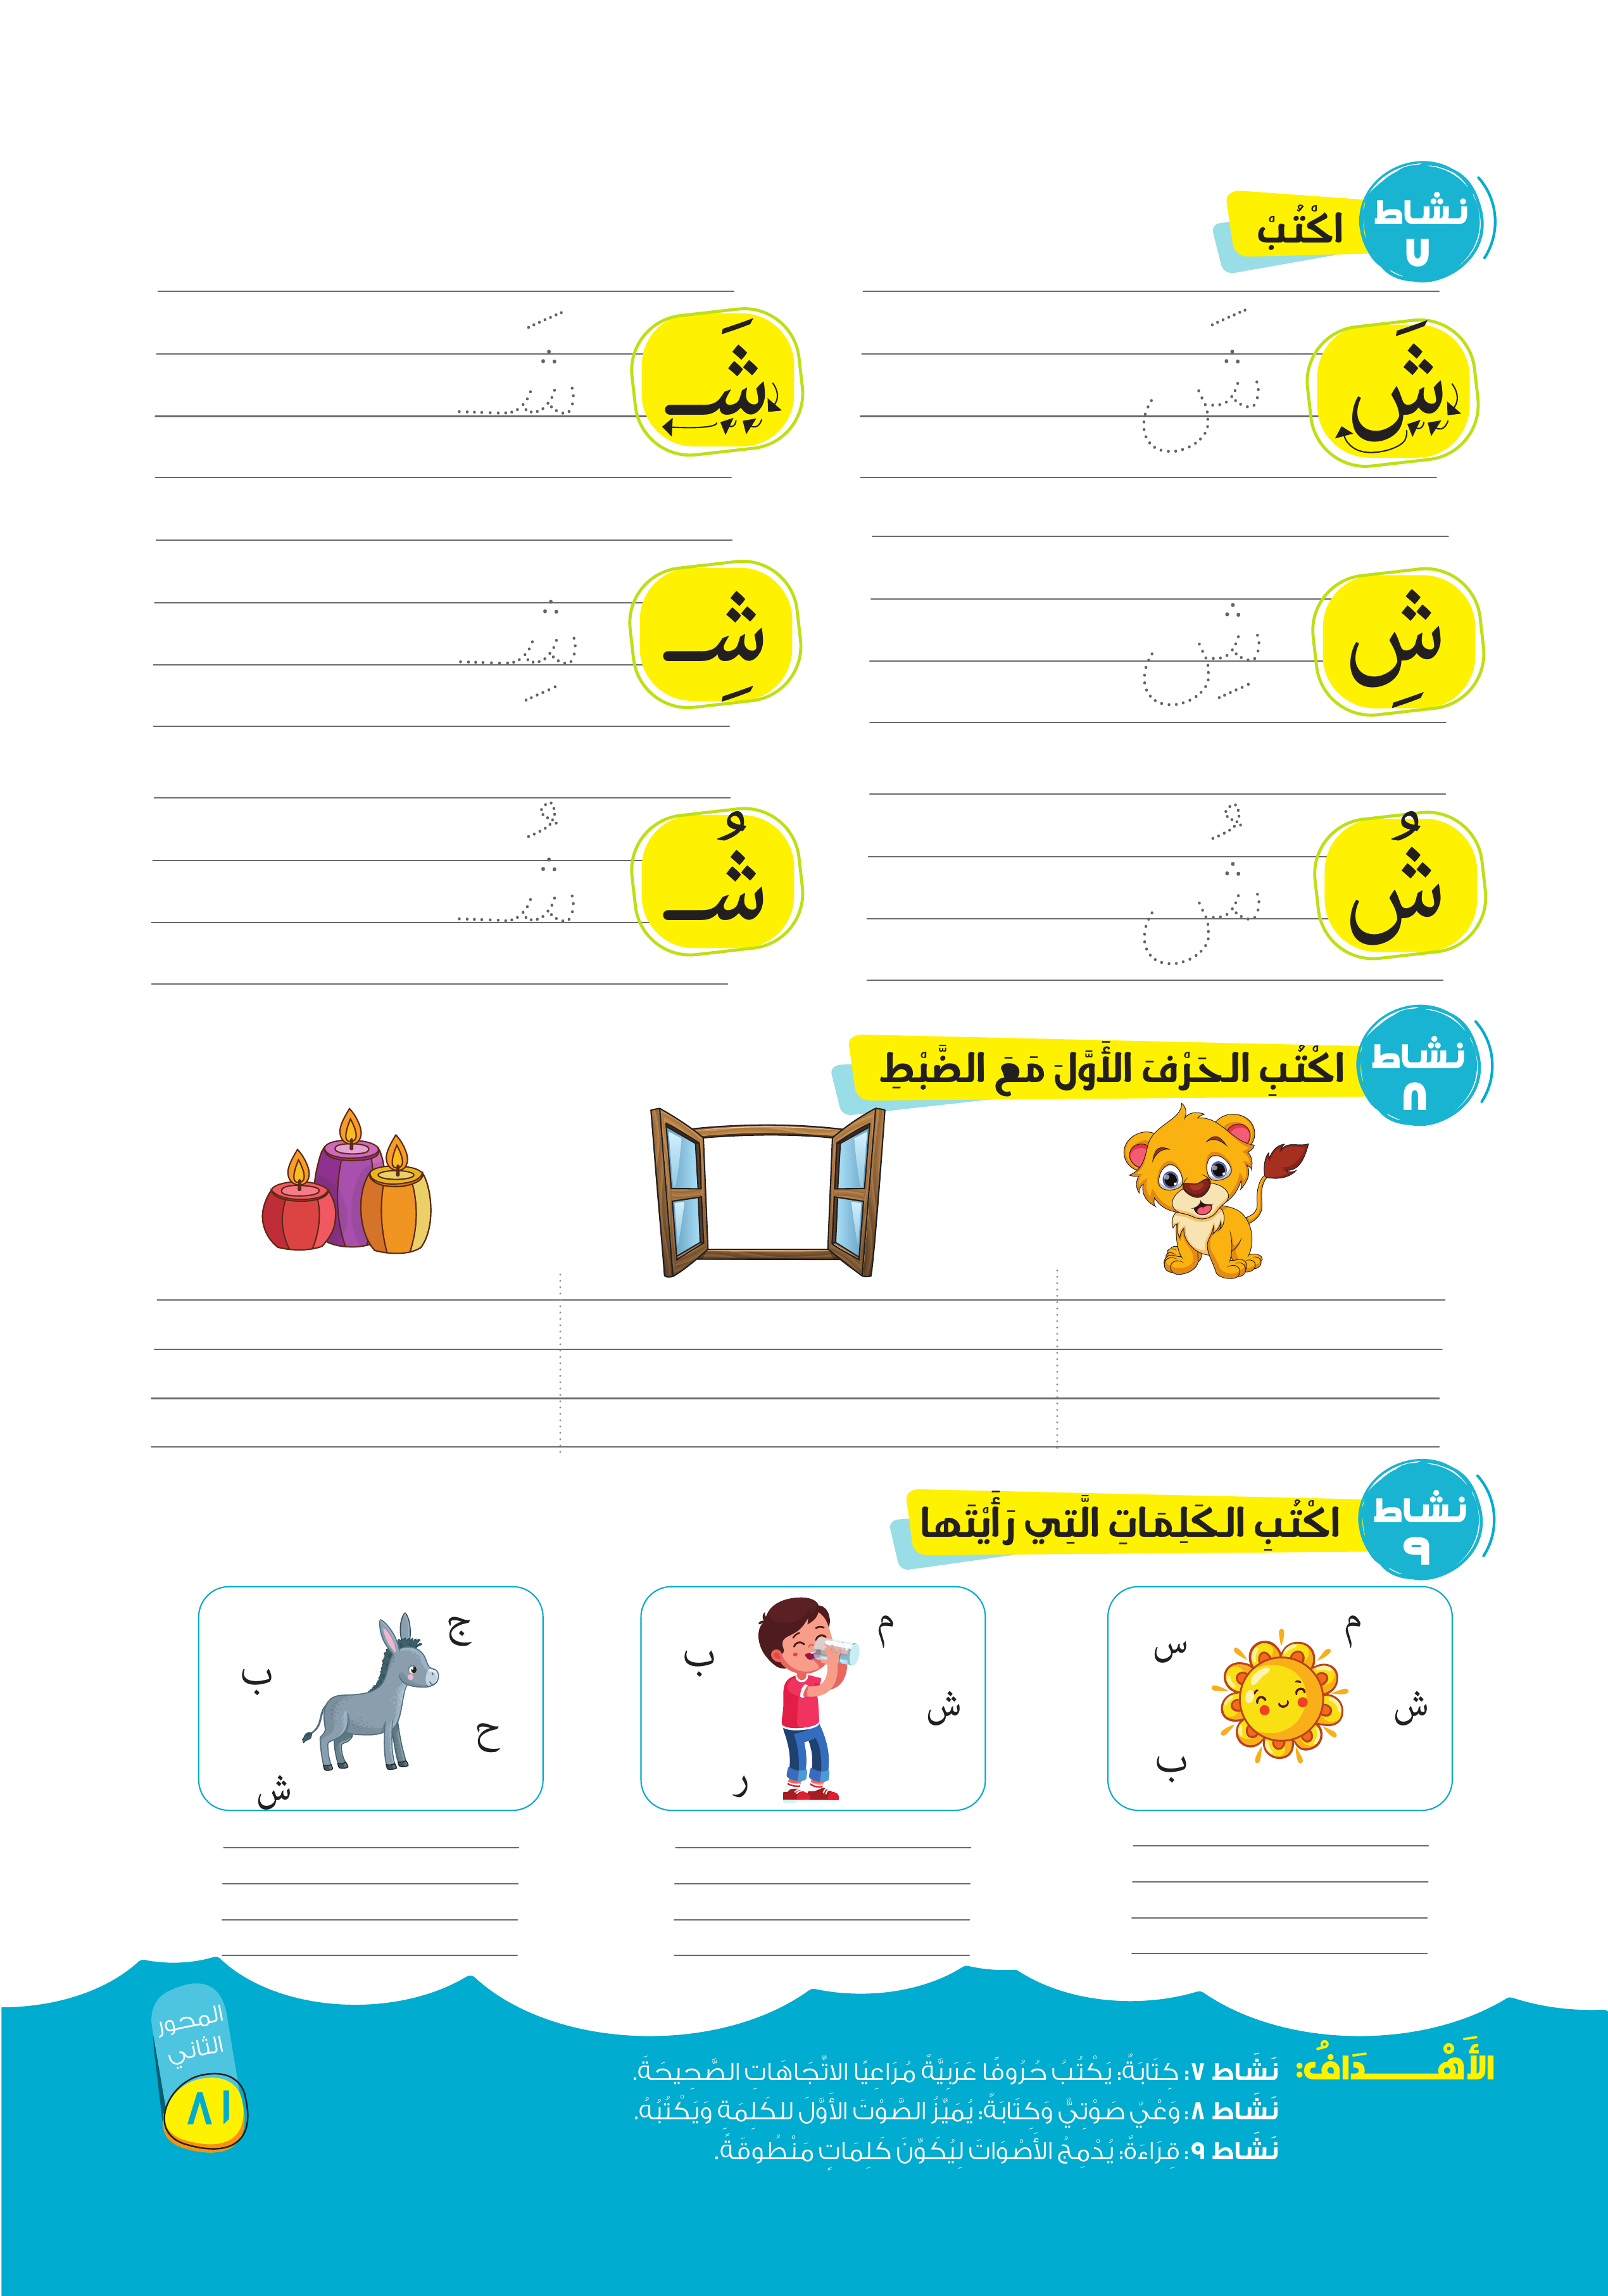 نشاط ٧
اكْتُبْ
شَ شَـ
شَ شَـ
شِ شِـ
شِ شِـ
شُ شُـ
شُ شُـ
نشاط ٨
اكْتُبِ الحَرْفَ الأَوَّلَ مَعَ الضَّبْطِ
نشاط ٩
اكْتُبِ الكَلِمَاتِ الَّتِي رَأَيْتَها
م س ش ب
م ب ش ر
ج ب ح ش
الأَهْـــدَافُ:
نَشَاط ٧: كِتَابَةٌ: يَكْتُبُ حُرُوفًا عَرَبِيَّةً مُرَاعِيًا الاتِّجَاهَاتِ الصَّحِيحَةَ.
نَشَاط ٨: وَعْيٌ صَوْتِيٌّ وَكِتَابَةٌ: يُمَيِّزُ الصَّوْتَ الأَوَّلَ للكَلِمَةِ وَيَكْتُبُهُ.
نَشَاط ٩: قِرَاءَةٌ: يُدْمِجُ الأَصْوَاتَ لِيُكَوِّنَ كَلِمَاتٍ مَنْطُوقَةً.
المحور
الثاني
٨١